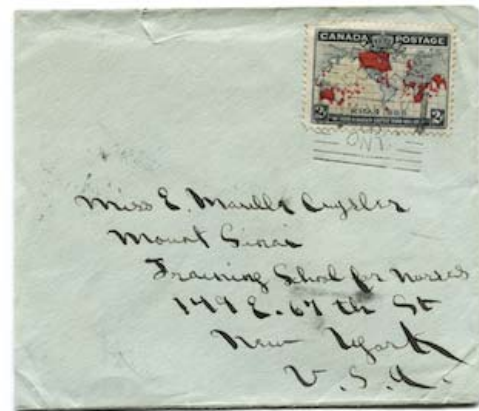 CANADA POSTAGE
XMAS 1898
2 2
ONT.
Miss E. Maude
Mount Sinai
Training School for Nurses
149 E. 67 th St
New York
U.S.A.